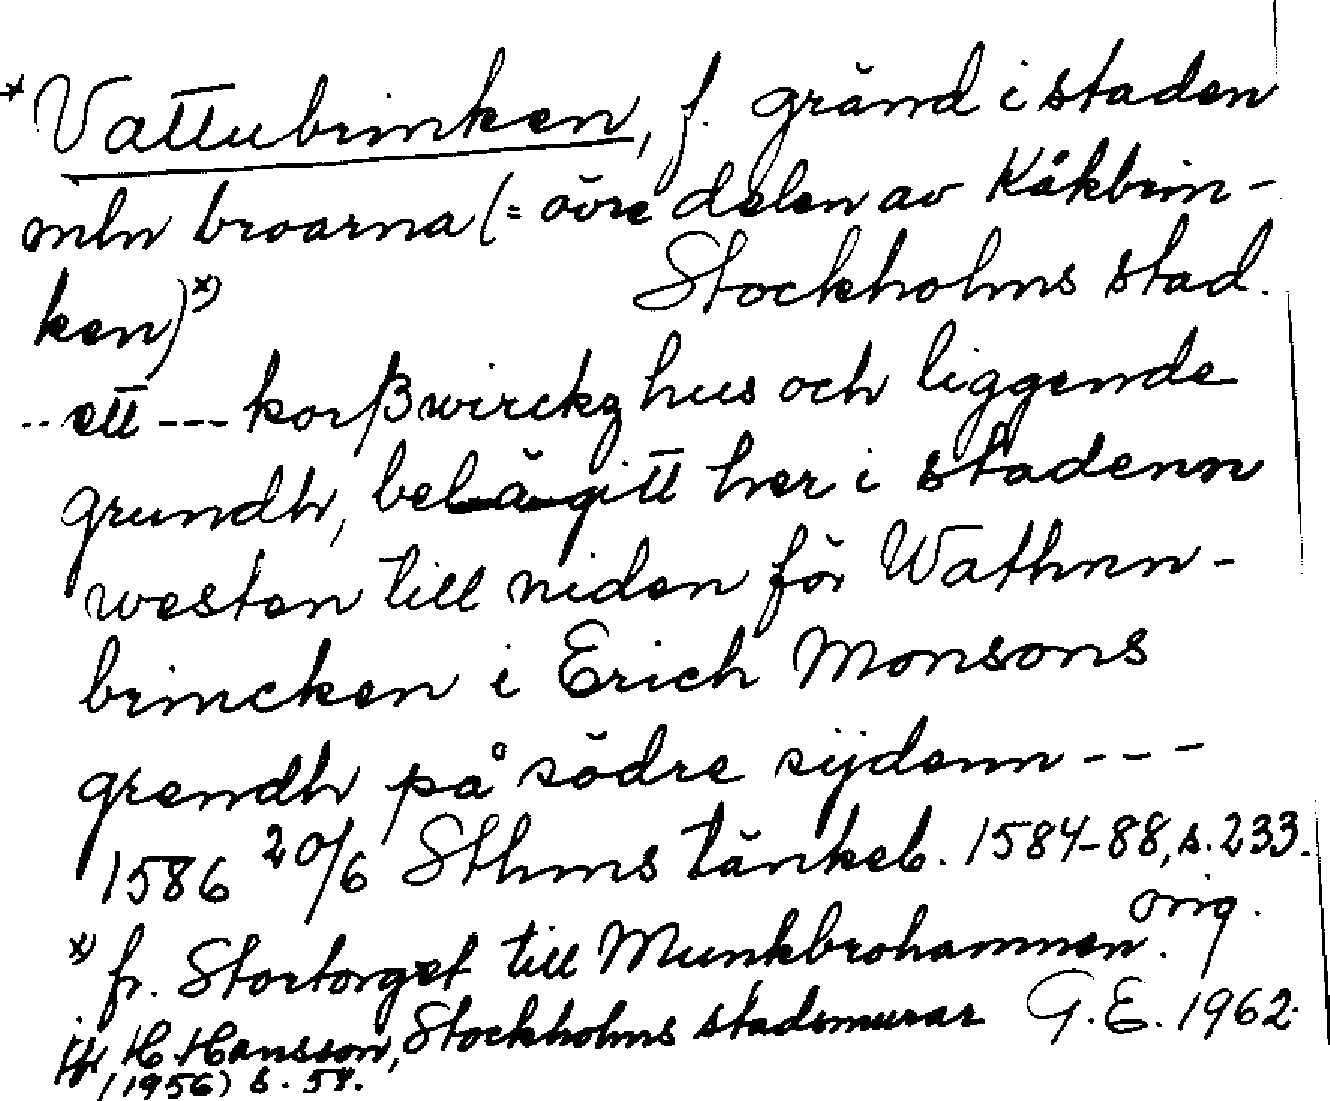 * Vattubrinken, f. gränd i staden
mln broarna (= övre delen av Kåkbrin-
ken)*)
Stockholms stad.
-- ett --- korßwirckz hus och liggende
grundh, belägitt her i stadenn
westen till niden för Wathnn-
brincken i Erich Monsons
grendh på södre sijdenn ---
1586 20/6 Sthms tänkeb. 1584-88, s. 233.
orig.
*) fr. Stortorget till Munkbrohamnen.
jfr H. Hansson, Stockholms stadsmurar G.E. 1962.
(1956) s. 54.